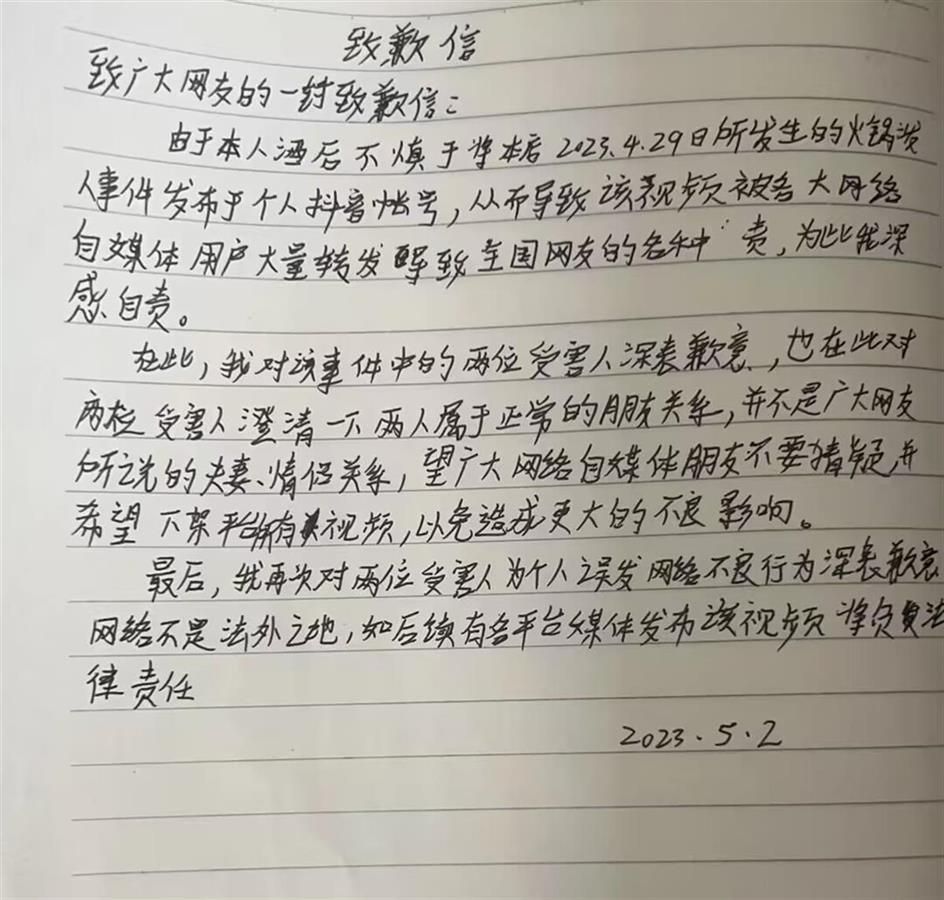 致歉信
致广大网友的一封致歉信：
由于本人酒后不慎于将本店2023.4.29日所发生的火锅泼
人事件发布于个人抖音帐号，从而导致该视频被各大网络
自媒体用户大量转发导致全国网友的各种 责，为此我深
感自责。
在此，我对该事件中的两位受害人深表歉意，也在此对
两位受害人澄清一下两人属于正常的朋友关系，并不是广大网友
所说的夫妻、情侣关系，望广大网络自媒体朋友不要猜疑，并
希望下架平台所有 视频，以免造成更大的不良影响。
最后，我再次对两位受害人为个人误发网络不良行为深表歉意
网络不是法外之地，如后续有各平台媒体发布该视频将负 法
律责任
2023.5.2